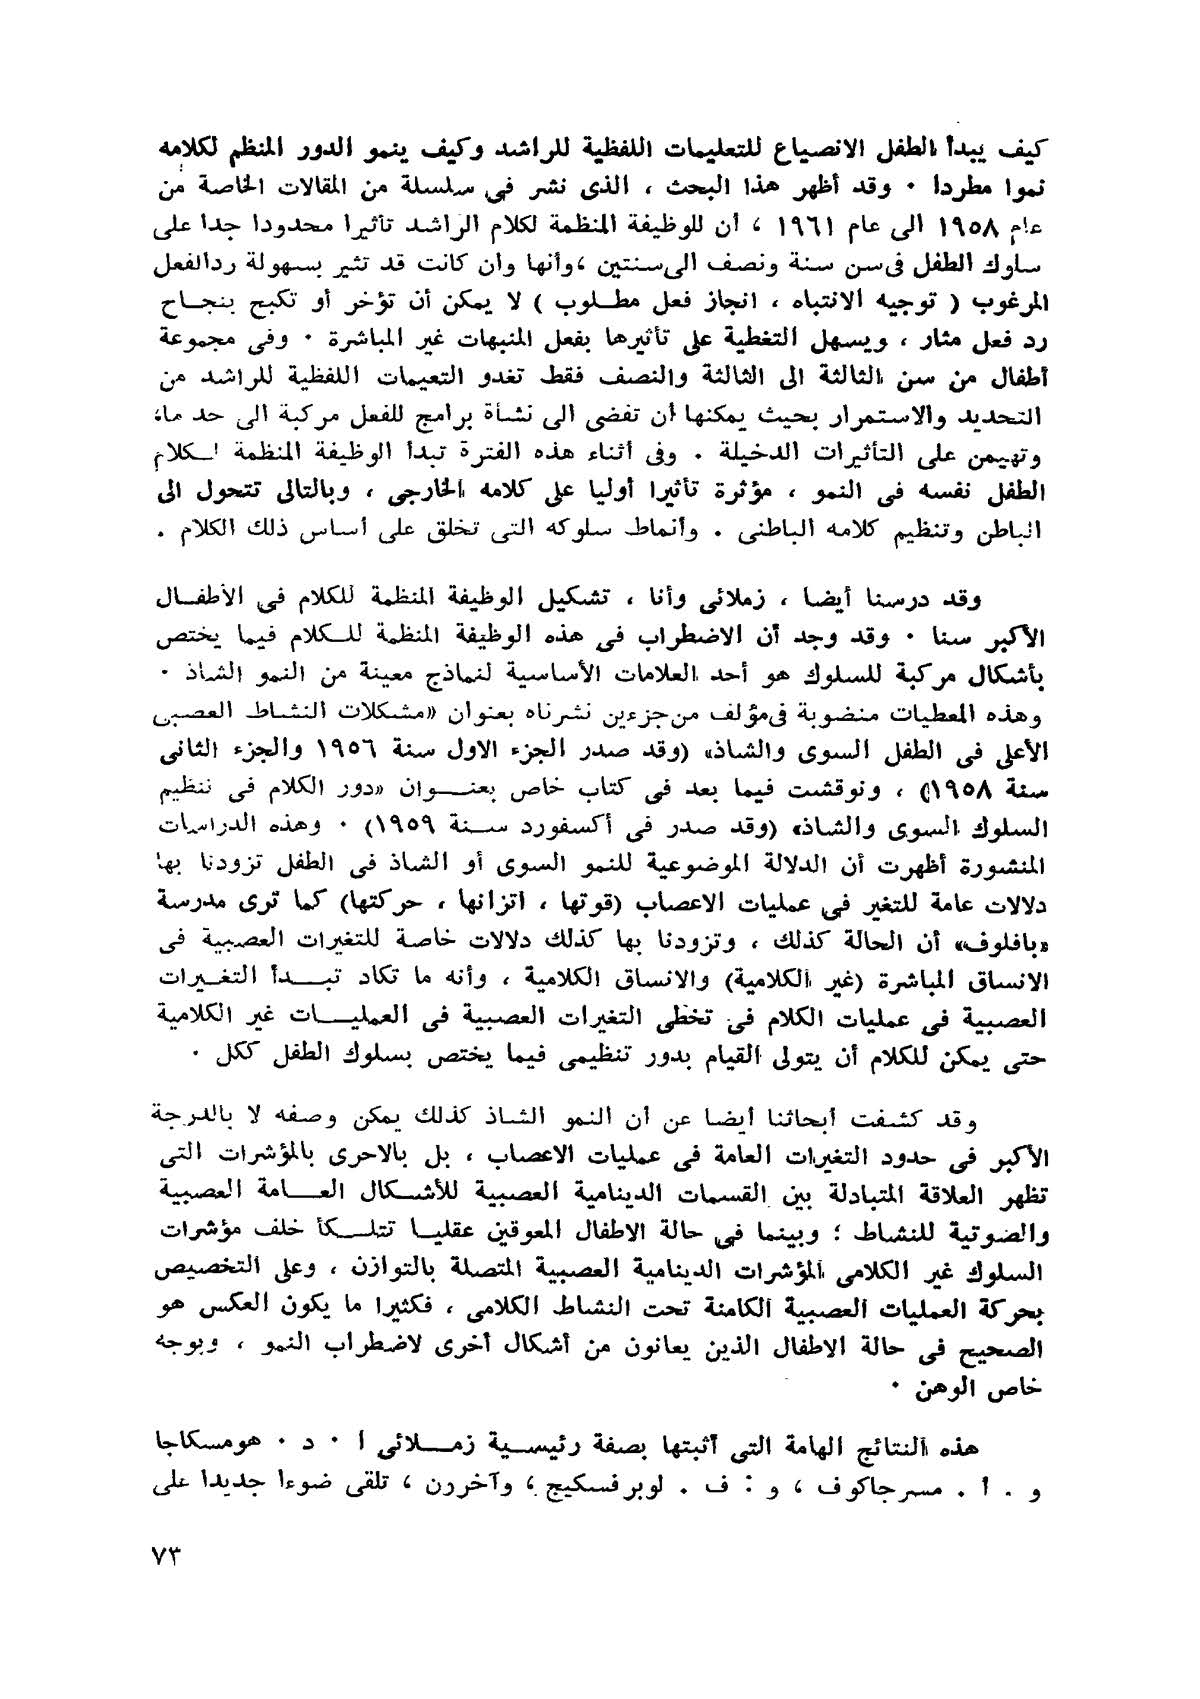 كيف يبدأ الطفل الانصياع للتعليمات اللفظية للراشد وكيف ينمو الدور المنظم لكلامه
نموا مطردا ٠ وقد أظهر هذا البحث ، الذى نشر فى سلسلة من المقالات الخاصة من
عام ١٩٥٨ الى عام ١٩٦١ ، أن للوظيفة المنظمة لكلام الراشد تأثيرا محدودا جدا على
سلوك الطفل فى سن سنة ونصف الى سنتين ، وأنها وان كانت قد تثير بسهولة رد الفعل
المرغوب ( توجيه الانتباه ، انجاز فعل مطلوب ) لا يمكن أن تؤخر أو تكبح بنجاح
رد فعل مثار ، ويسهل التغطية على تأثيرها بفعل المنبهات غير المباشرة ٠ وفى مجموعة
أطفال من سن الثالثة الى الثالثة والنصف فقط تغدو التعيمات اللفظية للراشد من
التحديد والاستمرار بحيث يمكنها أن تفضى الى نشأة برامج للفعل مركبة الى حد ما،
وتهيمن على التأثيرات الدخيلة . وفى أثناء هذه الفترة تبدأ الوظيفة المنظمة لكلام
الطفل نفسه فى النمو ، مؤثرة تأثيرا أوليا على كلامه الخارجى ، وبالتالى تتحول الى
الباطن وتنظيم كلامه الباطنى . وأنماط سلوكه التى تخلق على أساس ذلك الكلام .
وقد درسنا أيضا ، زملائى وأنا ، تشكيل الوظيفة المنظمة للكلام فى الأطفال
الأكبر سنا ٠ وقد وجد أن الاضطراب فى هذه الوظيفة المنظمة للكلام فيما يختص
بأشكال مركبة للسلوك هو أحد العلامات الأساسية لنماذج معينة من النمو الشاذ ٠
وهذه المعطيات منضوية فى مؤلف من جزءين نشرناه بعنوان «مشكلات النشاط العصبى
الأعلى فى الطفل السوى والشاذ» (وقد صدر الجزء الاول سنة ١٩٥٦ والجزء الثانى
سنة ١٩٥٨) ، ونوقشت فيما بعد فى كتاب خاص بعنوان «دور الكلام فى تنظيم
السلوك السوى والشاذ» (وقد صدر فى أكسفورد سنة ١٩٥٩) ٠ وهذه الدراسات
المنشورة أظهرت أن الدلالة الموضوعية للنمو السوى أو الشاذ فى الطفل تزودنا بها
دلالات عامة للتغير فى عمليات الاعصاب (قوتها ، اتزانها ، حركتها) كما ترى مدرسة
«بافلوف» أن الحالة كذلك ، وتزودنا بها كذلك دلالات خاصة للتغيرات العصبية فى
الانساق المباشرة (غير الكلامية) والانساق الكلامية ، وأنه ما تكاد تبدأ التغيرات
العصبية فى عمليات الكلام فى تخطى التغيرات العصبية فى العمليات غير الكلامية
حتى يمكن للكلام أن يتولى القيام بدور تنظيمى فيما يختص بسلوك الطفل ككل ٠
وقد كشفت أبحاثنا أيضا عن أن النمو الشاذ كذلك يمكن وصفه لا بالدرجة
الأكبر فى حدود التغيرات العامة فى عمليات الاعصاب ، بل بالاحرى بالمؤشرات التى
تظهر العلاقة المتبادلة بين القسمات الدينامية العصبية للأشكال العامة العصبية
والضوتية للنشاط ؛ وبينما فى حالة الاطفال المعوقين عقليا تتلكأ خلف مؤشرات
السلوك غير الكلامى المؤشرات الدينامية العصبية المتصلة بالتوازن ، وعلى التخصيص
بحركة العمليات العصبية الكامنة تحت النشاط الكلامى ، فكثيرا ما يكون العكس هو
الصحيح فى حالة الاطفال الذين يعانون من أشكال أخرى لاضطراب النمو ، وبوجه
خاص الوهن ٠
هذه النتائج الهامة التى أثبتها بصفة رئيسية زملائى أ ٠ د ٠ هومسكاجا
و . أ . مسرجاكوف ، و : ف . لوبرفسكيج ، وآخرون ، تلقى ضوءا جديدا على
٧٣